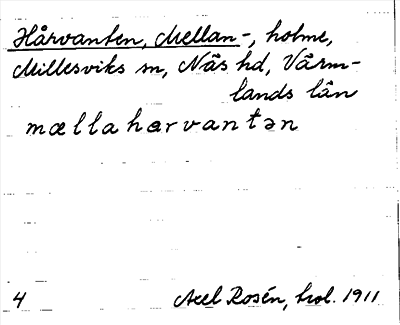 Hårvanten, Mellan-, holme,
Millesviks sn, Näs hd, Värm-
lands län
mællaharvantən
4 Axel Rosén, hol. 1911